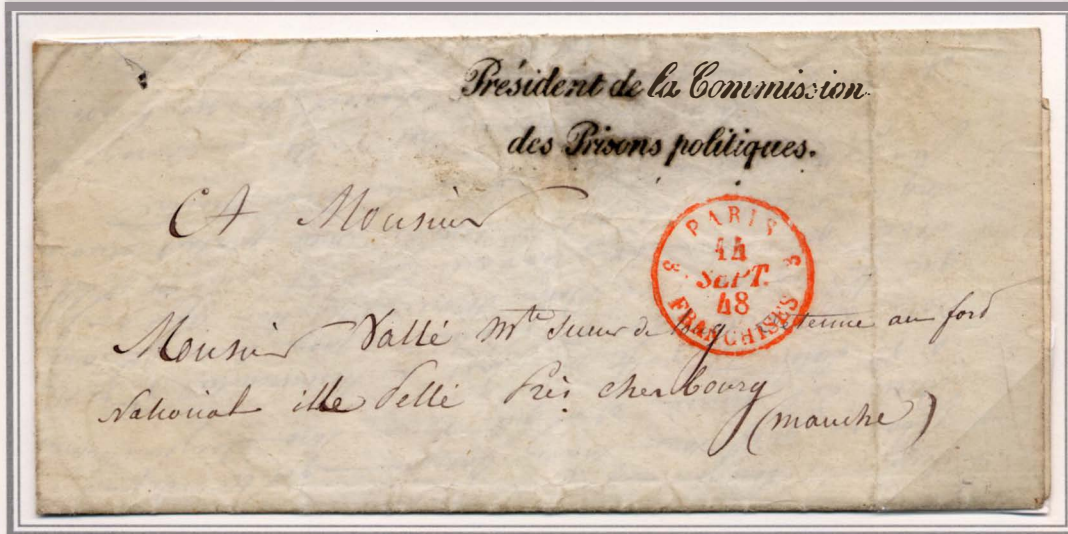 Président de la Commission
des Prisons politiques.
A Monsieur
PARIS
14
SEPT.
48
FRANCHISES
Monsieur Vallé au ford
National ille Pellé Près cherbourg
(manche)